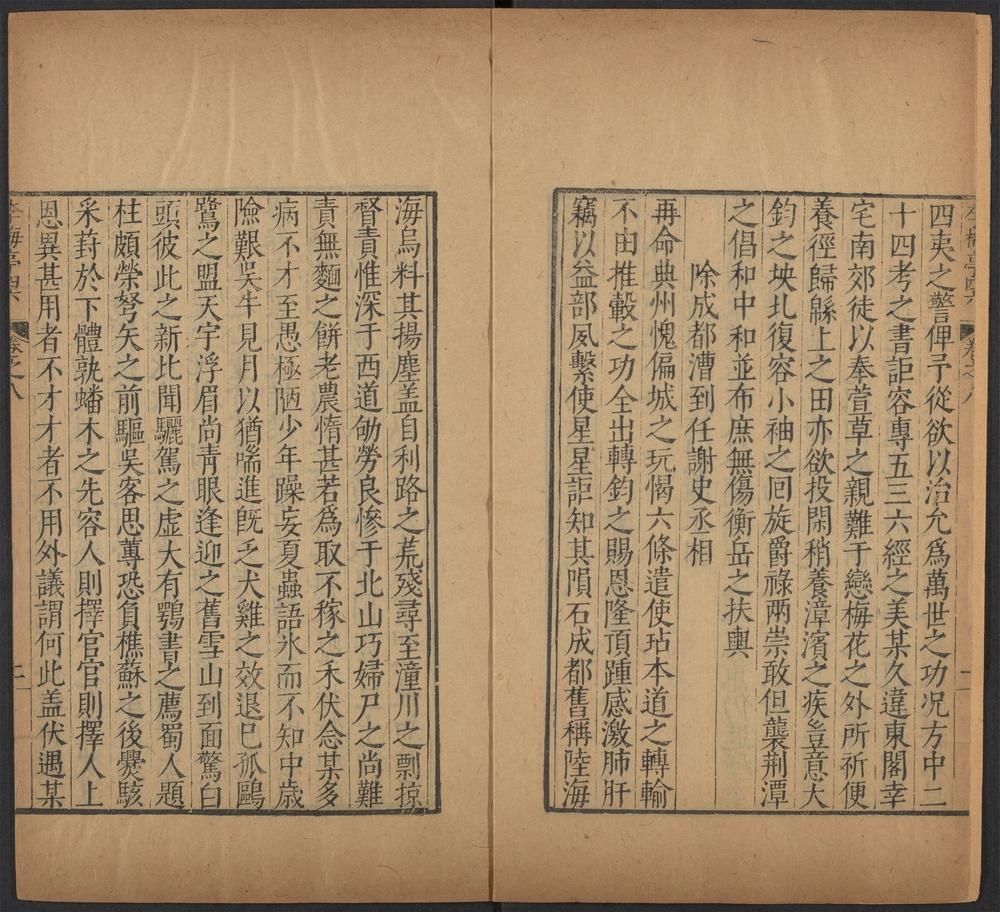 四夷之警俾予從欲以治允爲萬世之功况方中二
十四考之書詎容專五三六經之美某久違東閣幸
宅南郊徒以奉萱草之親難于戀梅花之外所祈便
養徑歸緜上之田亦欲投閑稍養漳濱之疾豈意大
鈞之坱圠復容小袖之囘旋爵祿兩崇敢但襲荆潭
之倡和中和並布庶無傷衡岳之扶輿
除成都漕到任謝史丞相
再命典州愧偏城之玩愒六條遣使玷本道之轉輸
不由推轂之功全出轉鈞之賜恩隆頂踵感激肺肝
竊以益部夙繫使星星詎知其隕石成都舊稱陸海
海烏料其揚塵盖自利路之荒殘尋至潼川之剽掠
督責惟深于西道劬勞良慘于北山巧婦尸之尚難
責無麵之餅老農惰甚若爲取不稼之禾伏念某多
病不才至愚極陋少年躁妄夏蟲語氷而不知中歳
險艱吳牛見月以猶喘進旣乏犬雞之效退巳孤鷗
鷺之盟天宇浮眉尚靑眼逢迎之舊雪山到面驚白
頭彼此之新比聞驪駕之虚大有鶚書之薦蜀人題
柱頗榮弩矢之前驅吳客思蓴恐負樵蘇之後爨駭
采葑於下體孰蟠木之先容人則擇官官則擇人上
恩異甚用者不才才者不用外議謂何此盖伏遇某
李梅亭四六
卷之八